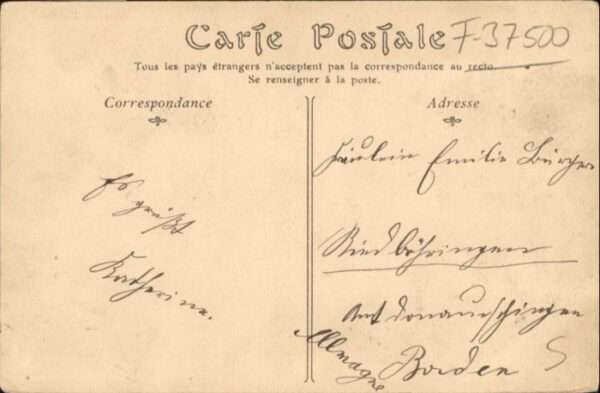 Carte Postale
F-37500
Tous les pays étrangers n'acceptent pas la correspondance au recto.
Se renseigner à la poste.
Correspondance
Es grüßt
Katherine.
Adresse
Fräulein Emilie Bürger
Riedböhringen
Amt Donaueschingen
Baden
Allmagne